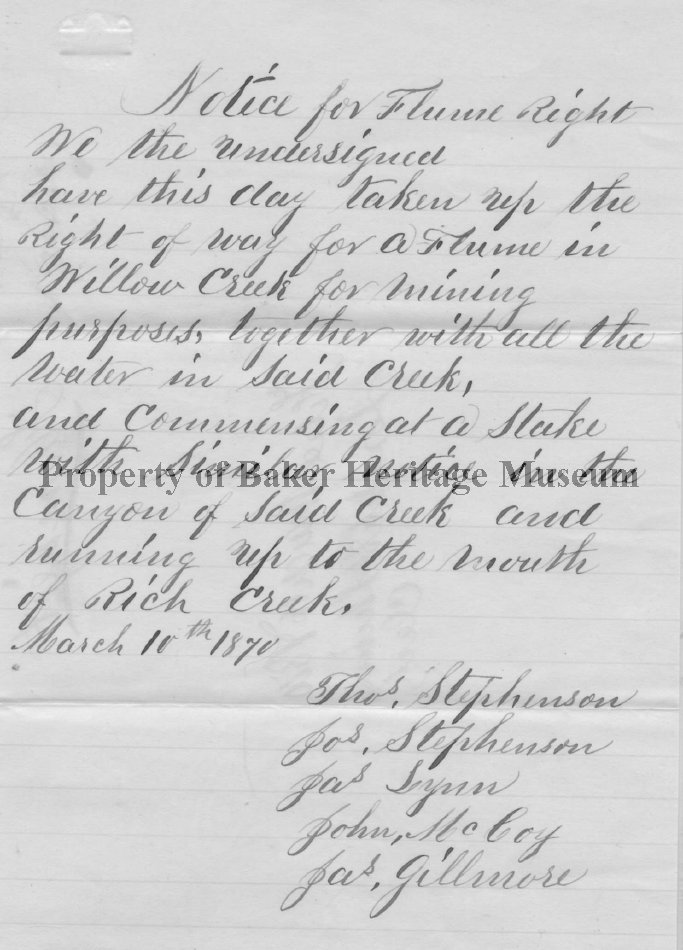 Notice for Flume Right
We the undersigned
have this day taken up the
Right of way for a Flume in
Willow Creek for mining
purposes, together with all the
Water in Said Creek,
and Commensing at a Stake
with Similar notice in the
Property of Baker Heritage Museum
Canyon of Said Creek and
running up to the mouth
of Rich Creek.
March 10th 1870
Thos, Stephenson
Jos, Stephenson
Jas Lynn
John, McCoy
Jas, Gillmore